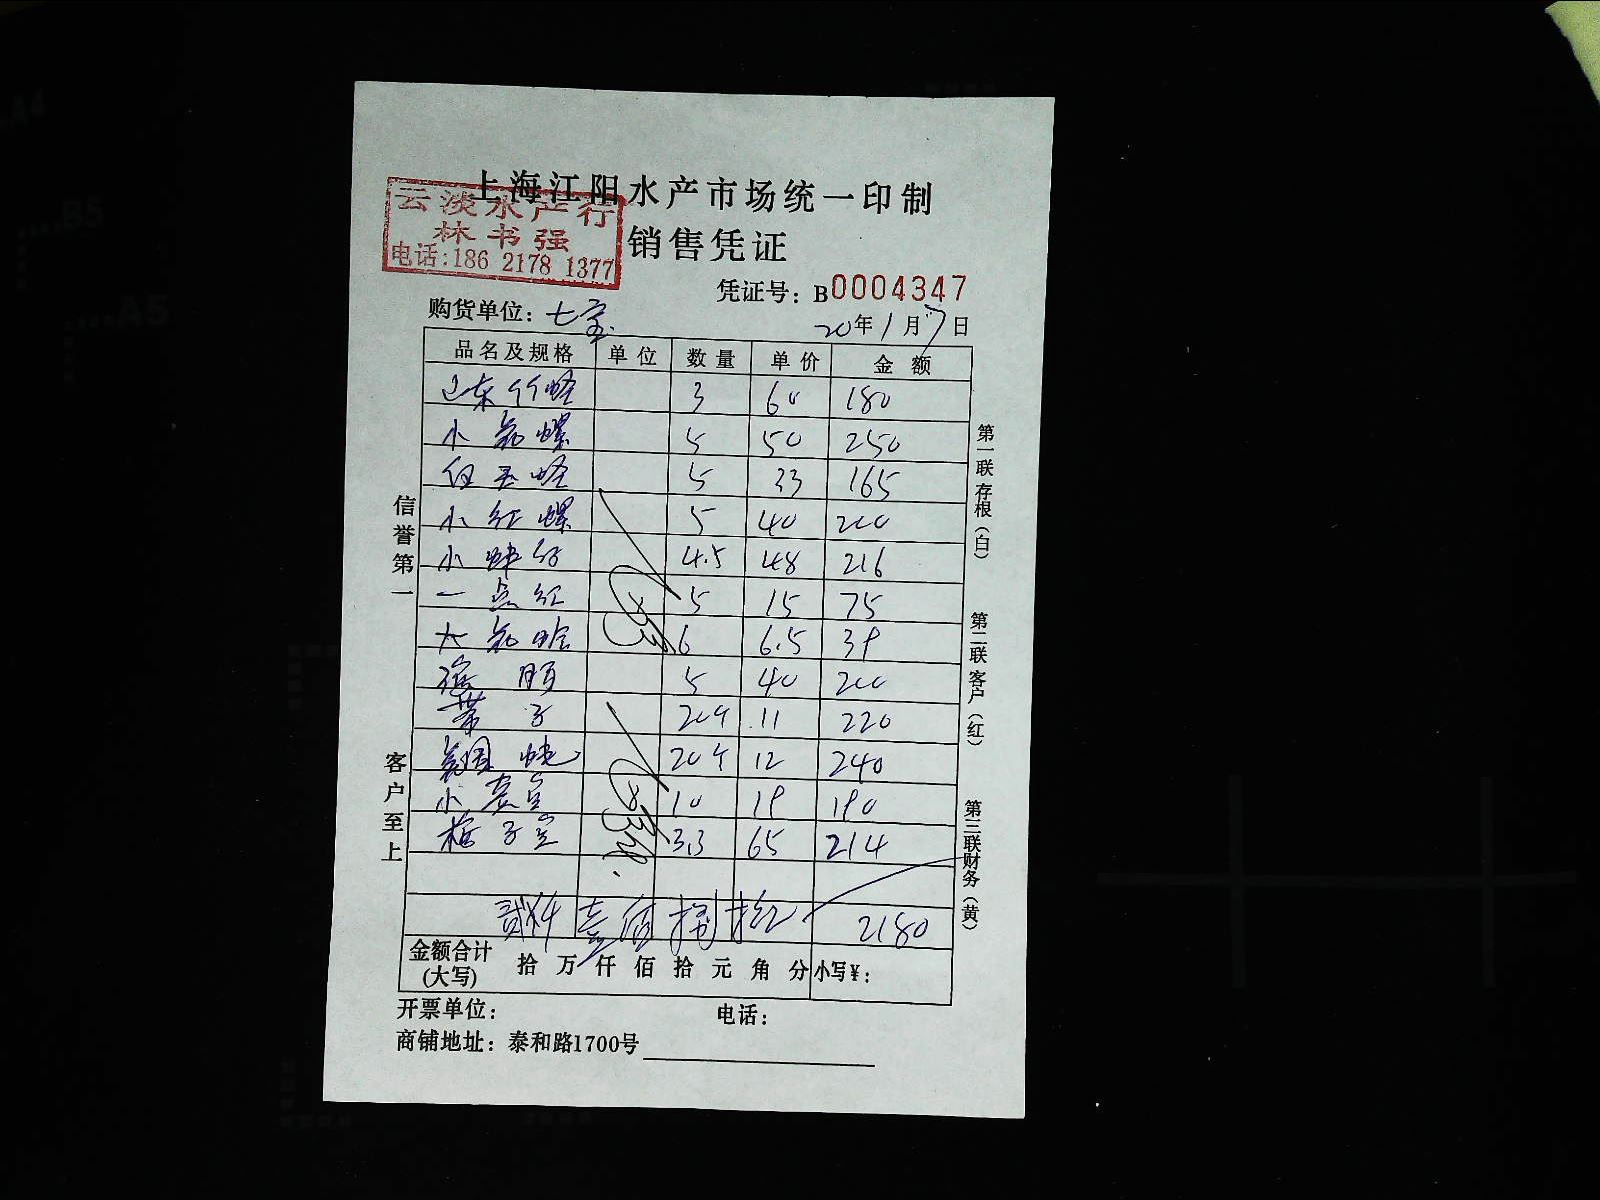 上海江阳水产市场统一印制
云淡水产行
林书强
电话:186 2178 1377
销售凭证
凭证号: B0004347
购货单位: 七宝
20年1月7日
品名及规格 单位 数量 单价 金额
山东竹蛏 3 60 180
小花螺 5 50 250
白玉蛏 5 33 165
小红螺 5 40 200
小 4.5 48 216
一点红 5 15 75
大花哈 6 6.5 39
5 40 200
子 20斤 11 220
20斤 12 240
小 10 19 190
3.3 65 214
贰仟壹佰捌拾 2180
金额合计
(大写) 拾万仟佰拾元角分 小写¥:
开票单位: 电话:
商铺地址: 泰和路1700号
信誉第一
客户至上
第一联 存根(白)
第二联 客户(红)
第三联 财务(黄)